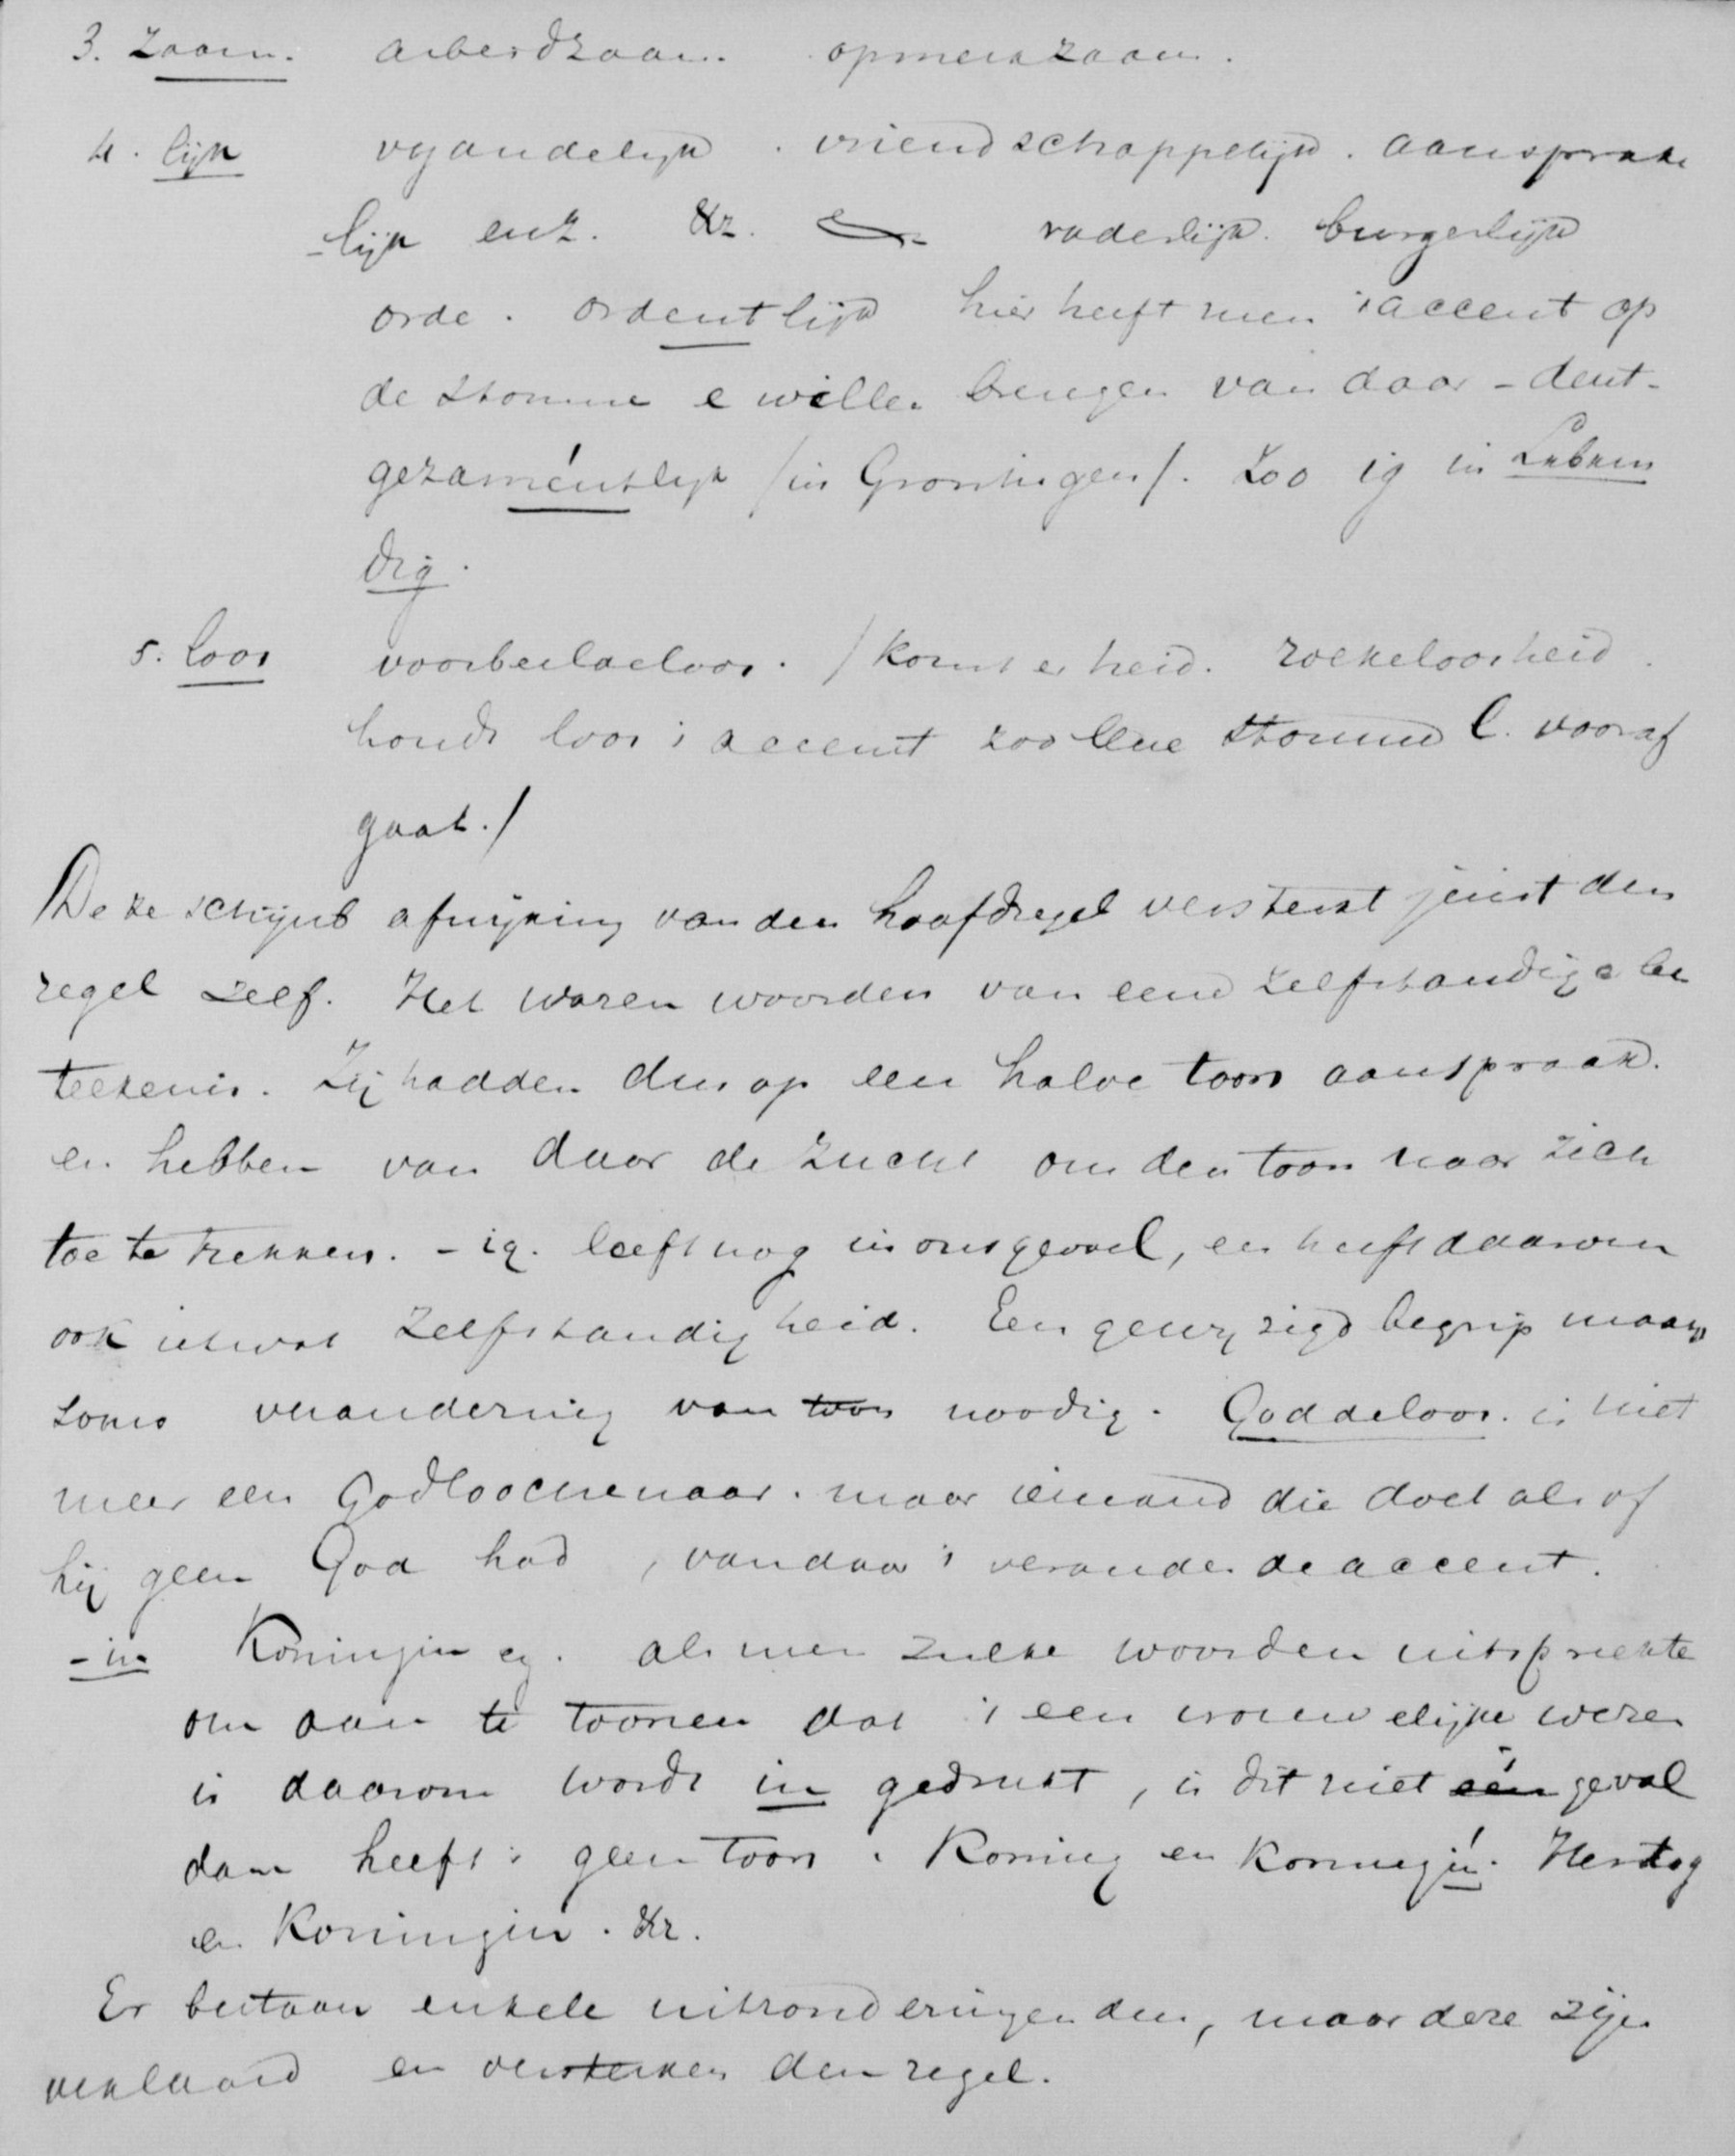 3. zaam. arbeidzaam. opmerkzaam.
4. lijk vyandelijk. vriendschappelijk. aansprake
-lijk enz. &z. vaderlijk. burgerlijk
orde. ordentlijk hier heeft men 't accent op
de stomme e willen brengen van daar -dent-
gezaméntlijk /in Groningen/. Zoo ig in Leben
dig.
5. loos voorbeeldeloos. /komt er heid. roekeloosheid
houdt loos 't accent zoo eene stomme l. vooraf
gaat./
Deze schijnb afwijking van den hoofdregel versterkt juist den
regel zelf. Het waren woorden van eene zelfstandige be
teekenis. Zij hadden dus op een halve toon aanspraak.
en hebben van daar de zucht om den toon naar zich
toe te trekken. -ig. leeft nog in ons gevoel, en heeft daarom
ook ietwat zelfstandigheid. Een gewyzigd begrip maakt
soms verandering van toon noodig. Goddeloos. is niet
meer een Godloochenaar. maar iemand die doet als of
hij geen God had, vandaar 't veranderde accent.
-in Koningin eg. als men zulke woorden uitspreekt
om aan te toonen dat 't een vrouwelijk wezen
is daarom wordt in gedrukt, is dit niet één geval
dan heeft 't geen toon. Koning en Koningín. Hertog
en Koningin. &z.
Er bestaan enkele uitzonderingen dus, maar deze zijn
verklaard en versterken den regel.